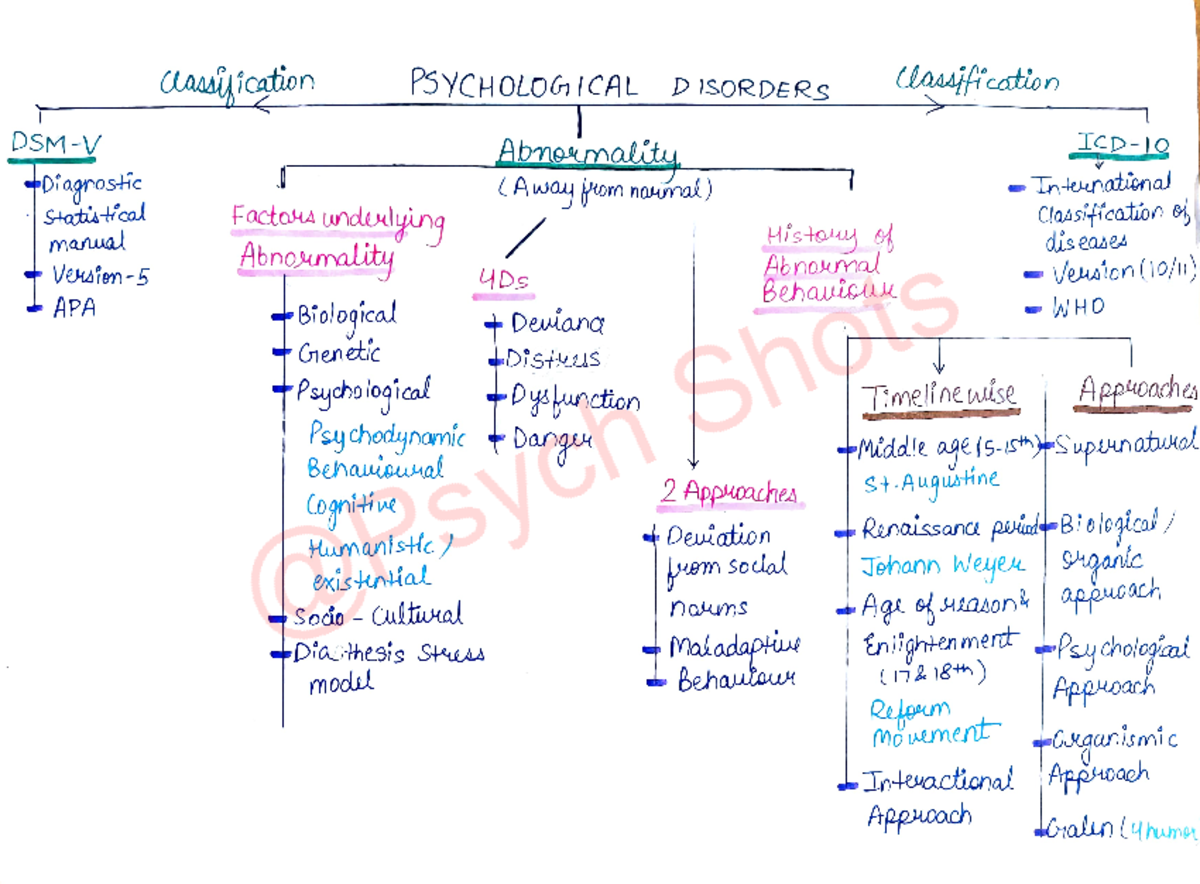 Classification
PSYCHOLOGICAL DISORDERS
Classification
DSM-V
Diagnostic
Statistical
manual
Version-5
APA
Abnormality
(Away from normal)
Factors underlying
Abnormality
Biological
Genetic
Psychological
Psychodynamic
Behavioural
Cognitive
Humanistic /
existential
Socio-Cultural
Diathesis Stress
model
4Ds
Deviance
Distress
Dysfunction
Danger
2 Approaches
Deviation
from social
norms
Maladaptive
Behaviour
History of
Abnormal
Behaviour
Timelinewise
Middle age (5-15th)
St. Augustine
Renaissance period
Johann Weyer
Age of reason &
Enlightenment
(17 & 18th)
Reform
Movement
Interactional
Approach
Approaches
Supernatural
Biological /
organic
approach
Psychological
Approach
Organismic
Approach
Galen (4 humor
ICD-10
International
Classification of
diseases
Version (10/11)
WHO
@Psych Shots